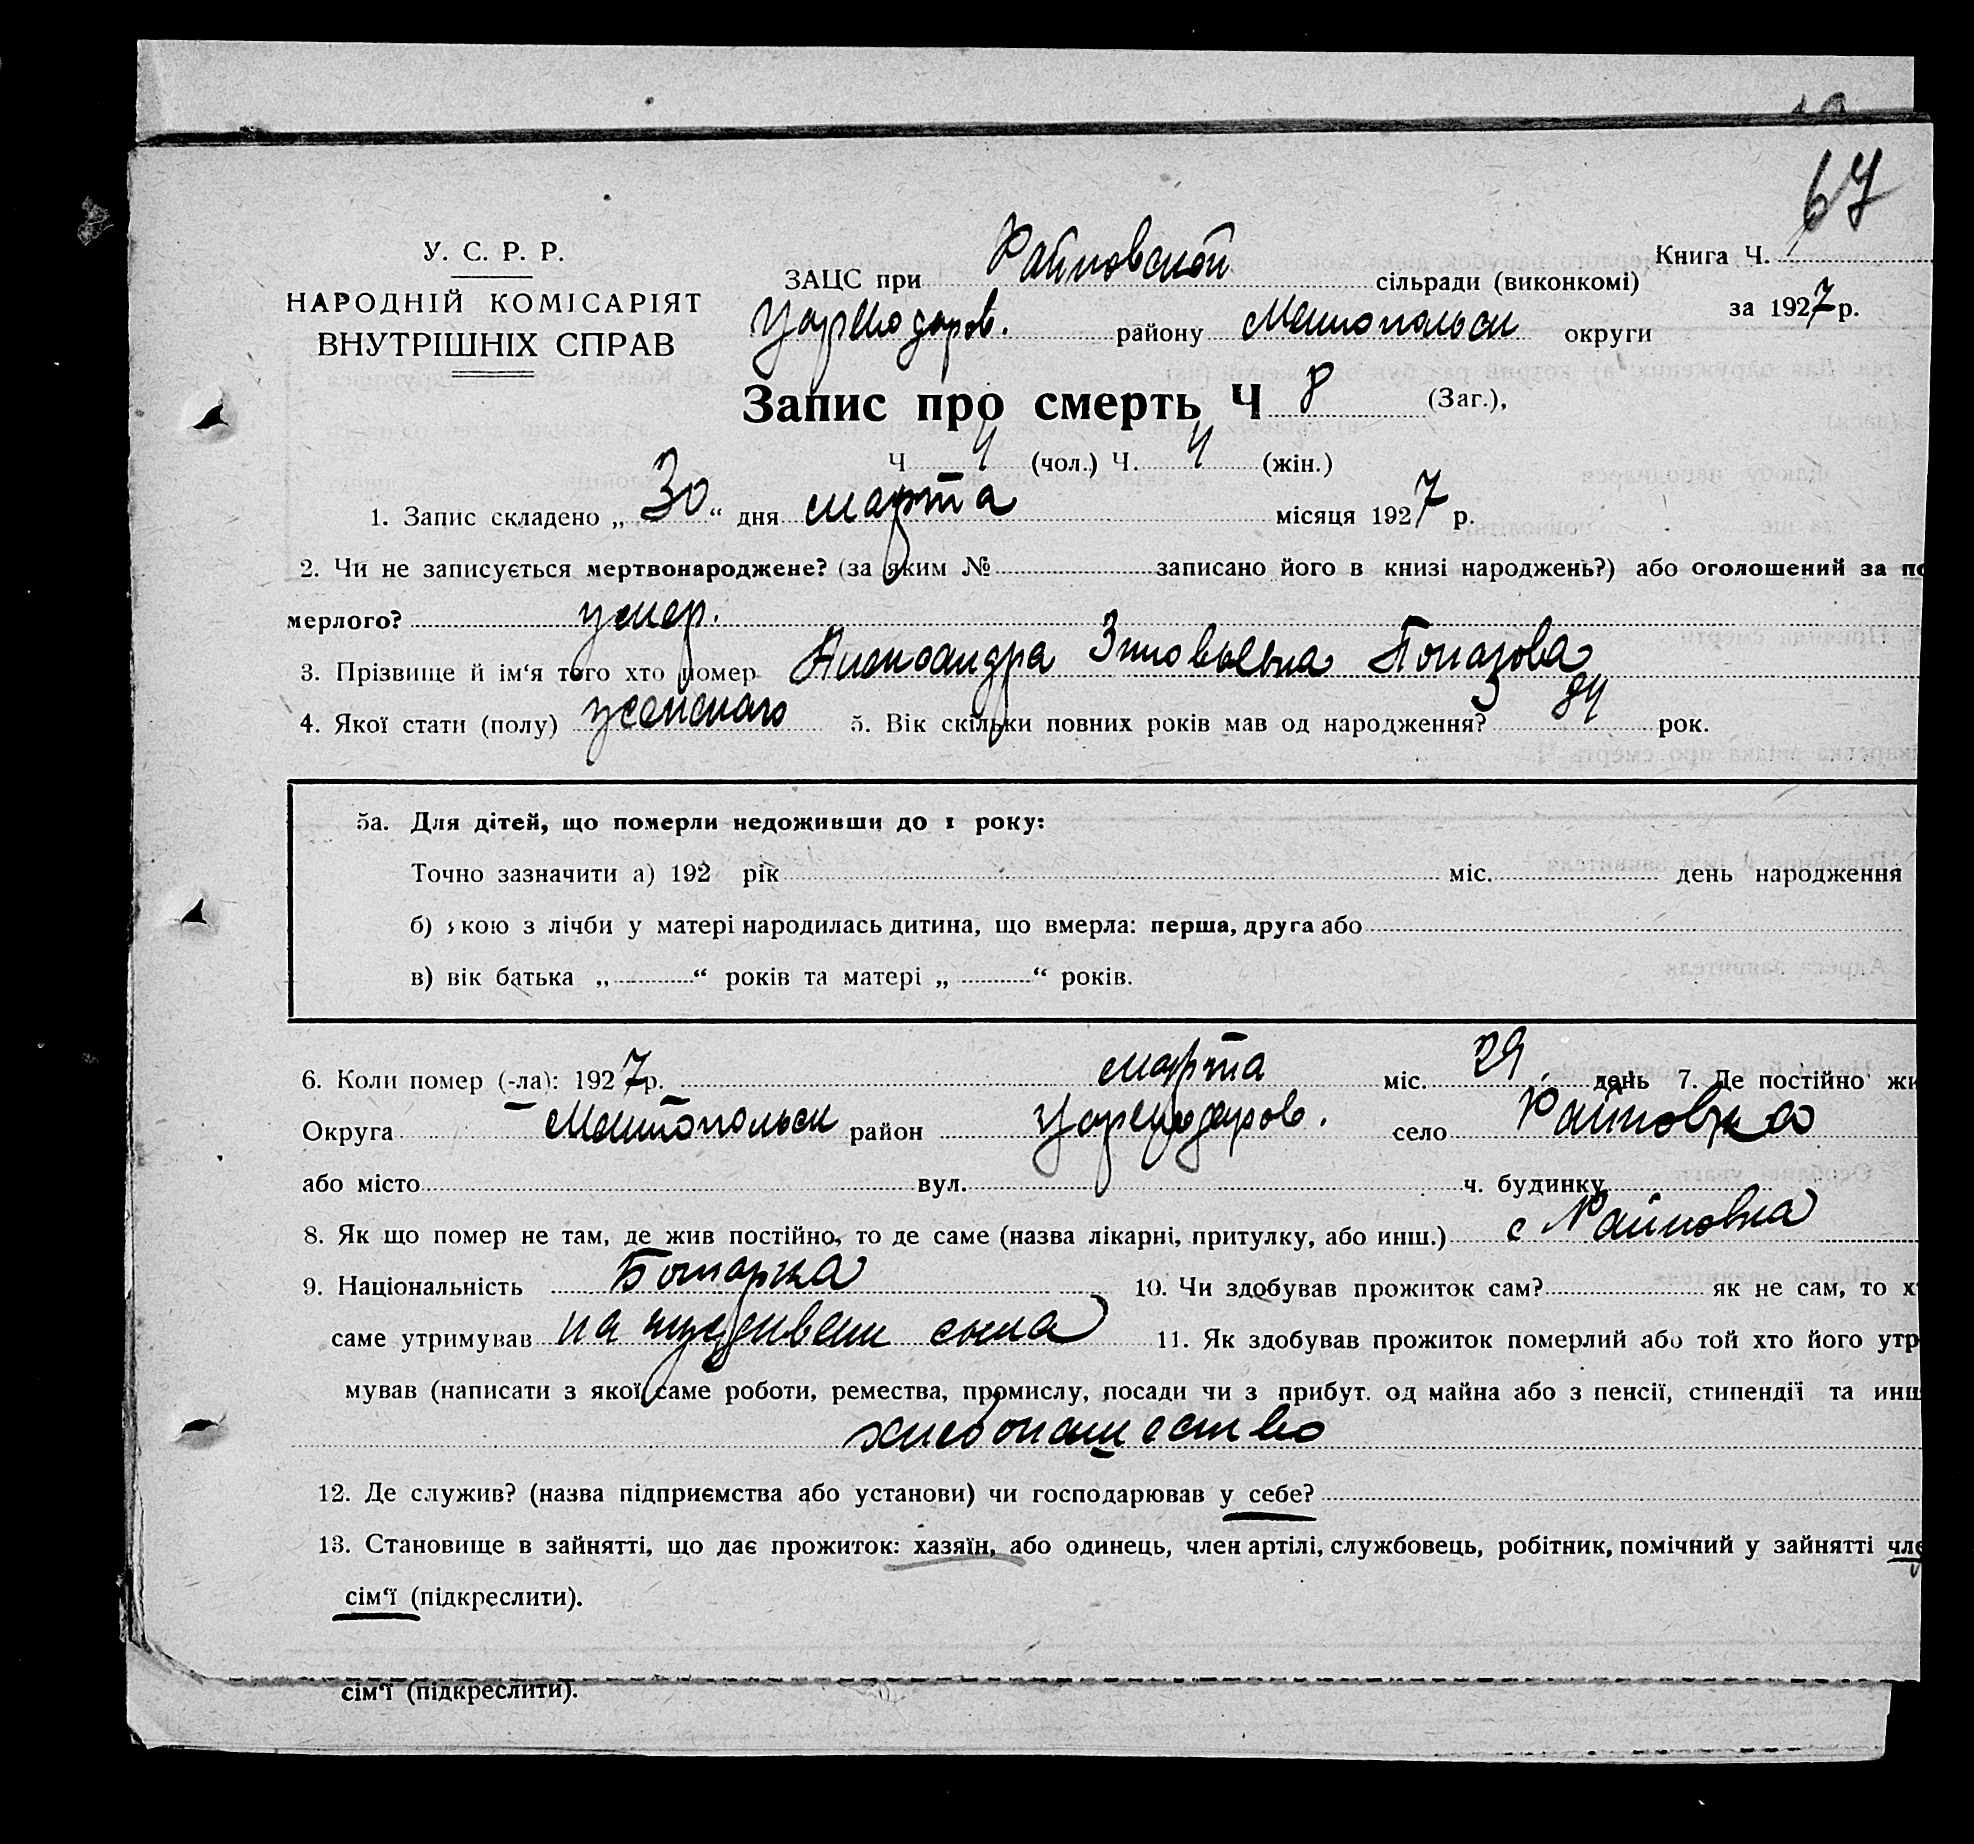 67
У. С. Р. Р.
НАРОДНІЙ КОМІСАРІЯТ
ВНУТРІШНІХ СПРАВ
Книга Ч.
ЗАЦС при Райновской сільради (виконкомі)
за 1927 р.
району округи
Запис про смерть Ч 8 (Заг.),
Ч 4 (чол.) Ч. 4 (жін.)
1. Запис складено „30“ дня марта місяця 1927 р.
2. Чи не записується мертвонароджене? (за яким № записано його в книзі народжень?) або оголошений за по
мерлого? умер.
3. Прізвище й ім‘я того хто помер Александра Зиновьевна
4. Якої стати (полу) женского 5. Вік скільки повних років мав од народження? 84 рок.
5а. Для дітей, що померли недоживши до 1 року:
Точно зазначити а) 192 рік міс. день народження
б) якою з лічби у матері народилась дитина, що вмерла: перша, друга або
в) вік батька „ “ років та матері „ “ років.
6. Коли помер (-ла): 1927 р. марта міс. 29 день 7. Де постійно жи
Округа район село Райновка
або місто вул. ч. будинку
8. Як що помер не там, де жив постійно, то де саме (назва лікарні, притулку, або инш.) с Райновка
9. Національність Болгарка 10. Чи здобував прожиток сам? як не сам, то х
саме утримував на иждивении сына 11. Як здобував прожиток померлий або той хто його утр
мував (написати з якої саме роботи, ремества, промислу, посади чи з прибут. од майна або з пенсії, стипендії та инш
хлебопашество
12. Де служив? (назва підприємства або установи) чи господарював у себе?
13. Становище в зайнятті, що дає прожиток: хазяїн, або одинець, член артілі, службовець, робітник, помічний у зайнятті чле
сім‘ї (підкреслити).
сім‘ї (підкреслити).